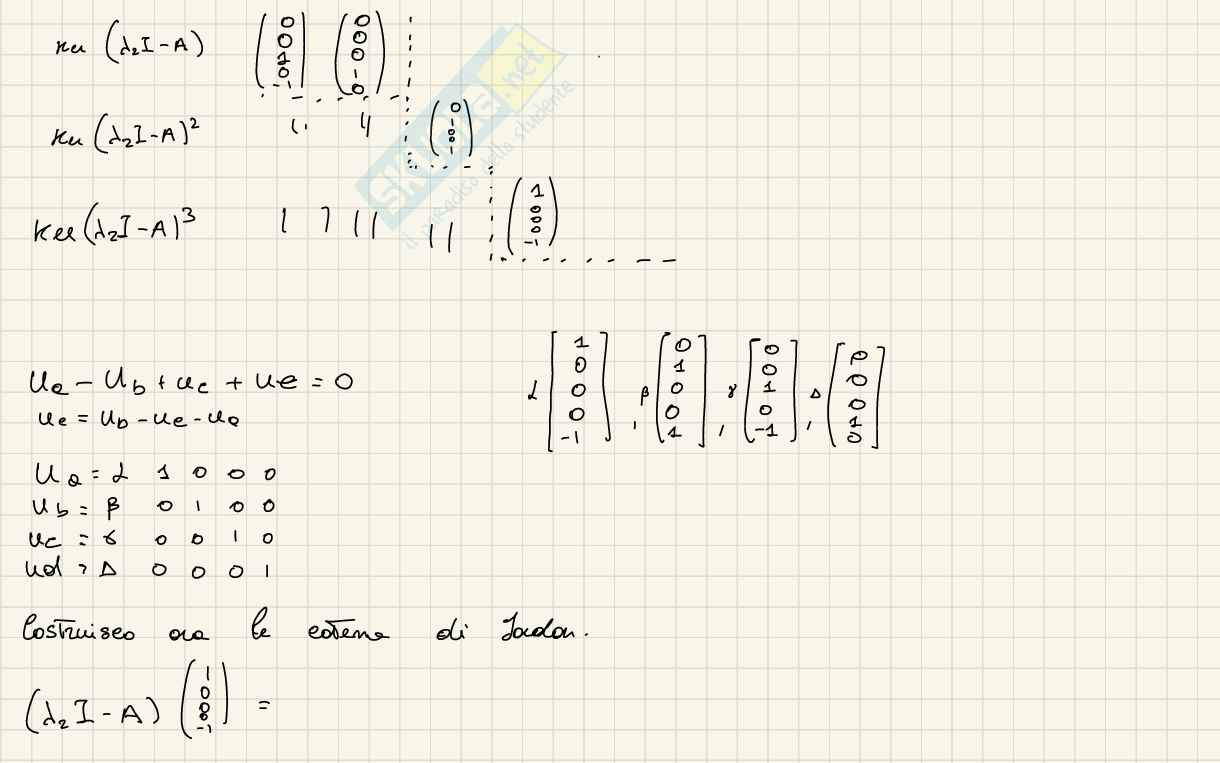 ker (λ₂I-A) (0 0 1 0 -1) (0 0 0 1 0)
ker (λ₂I-A)² (0 1 0 0 1)
ker (λ₂I-A)³ (1 0 0 0 -1)
SKUOLA.net
il paradiso dello studente
ua - ub + uc + ue = 0
ue = ub - uc - ua
α [1 0 0 0 -1], β [0 1 0 0 1], γ [0 0 1 0 -1], Δ [0 0 0 1 0]
ua = α 1 0 0 0
ub = β 0 1 0 0
uc = γ 0 0 1 0
ud = Δ 0 0 0 1
Costruisco ora le catene di Jordan.
(λ₂I-A) (1 0 0 0 -1) =